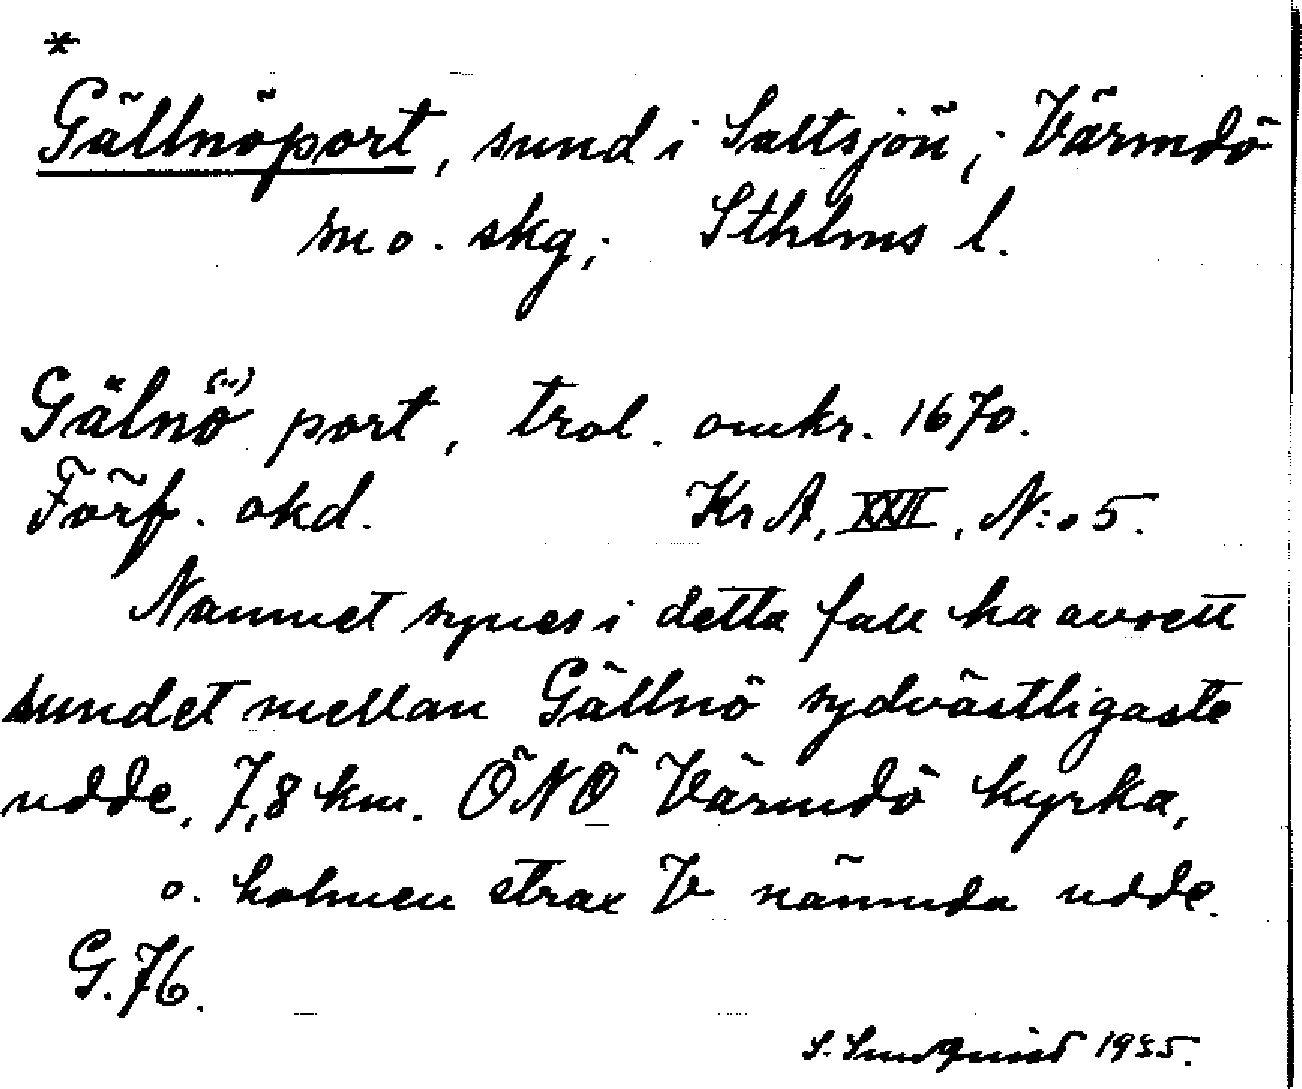 *
Gällnöport, sund i Saltsjön, i Värmdö
sn o. skg; Sthlms l.
Gälnö(¨) port, trol. omkr. 1670.
Förf. okd. Kr A, XXII, N:o 5.
Namnet synes i detta fall ha avsett
sundet mellan Gällnö sydvästligaste
udde, 7,8 km. ÖNÖ Värmdö kyrka,
o. holmen strax V nämnda udde.
G. 76.
S. Sundquist 1935.